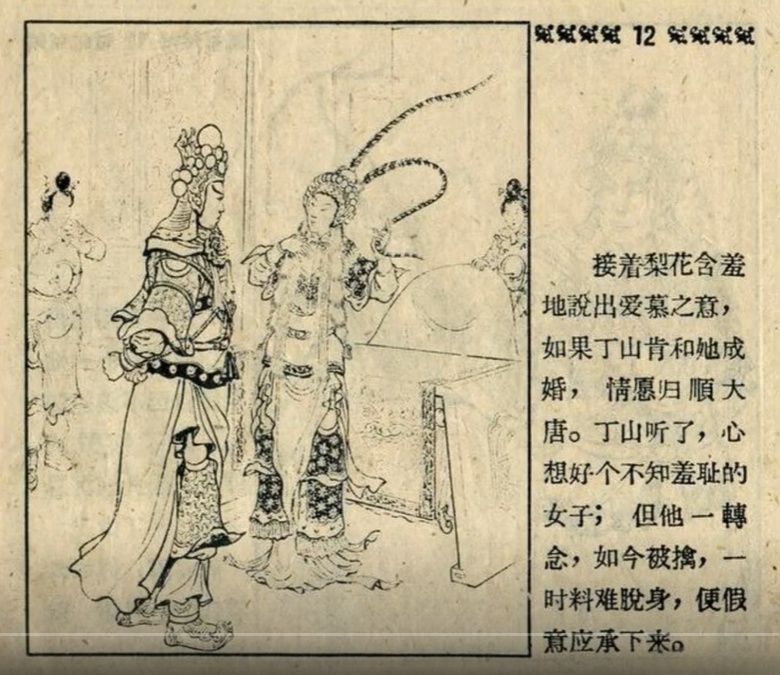 12
接着梨花含羞
地說出爱慕之意，
如果丁山肯和她成
婚， 情愿归順大
唐。丁山听了，心
想好个不知羞耻的
女子； 但他一轉
念，如今被擒，一
时料难脫身，便假
意应承下来。